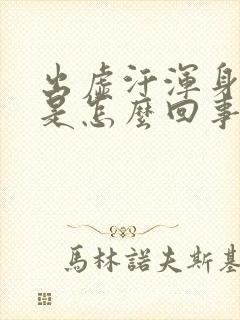 出虛汗渾身
是怎麼回事
馬林諾夫斯基